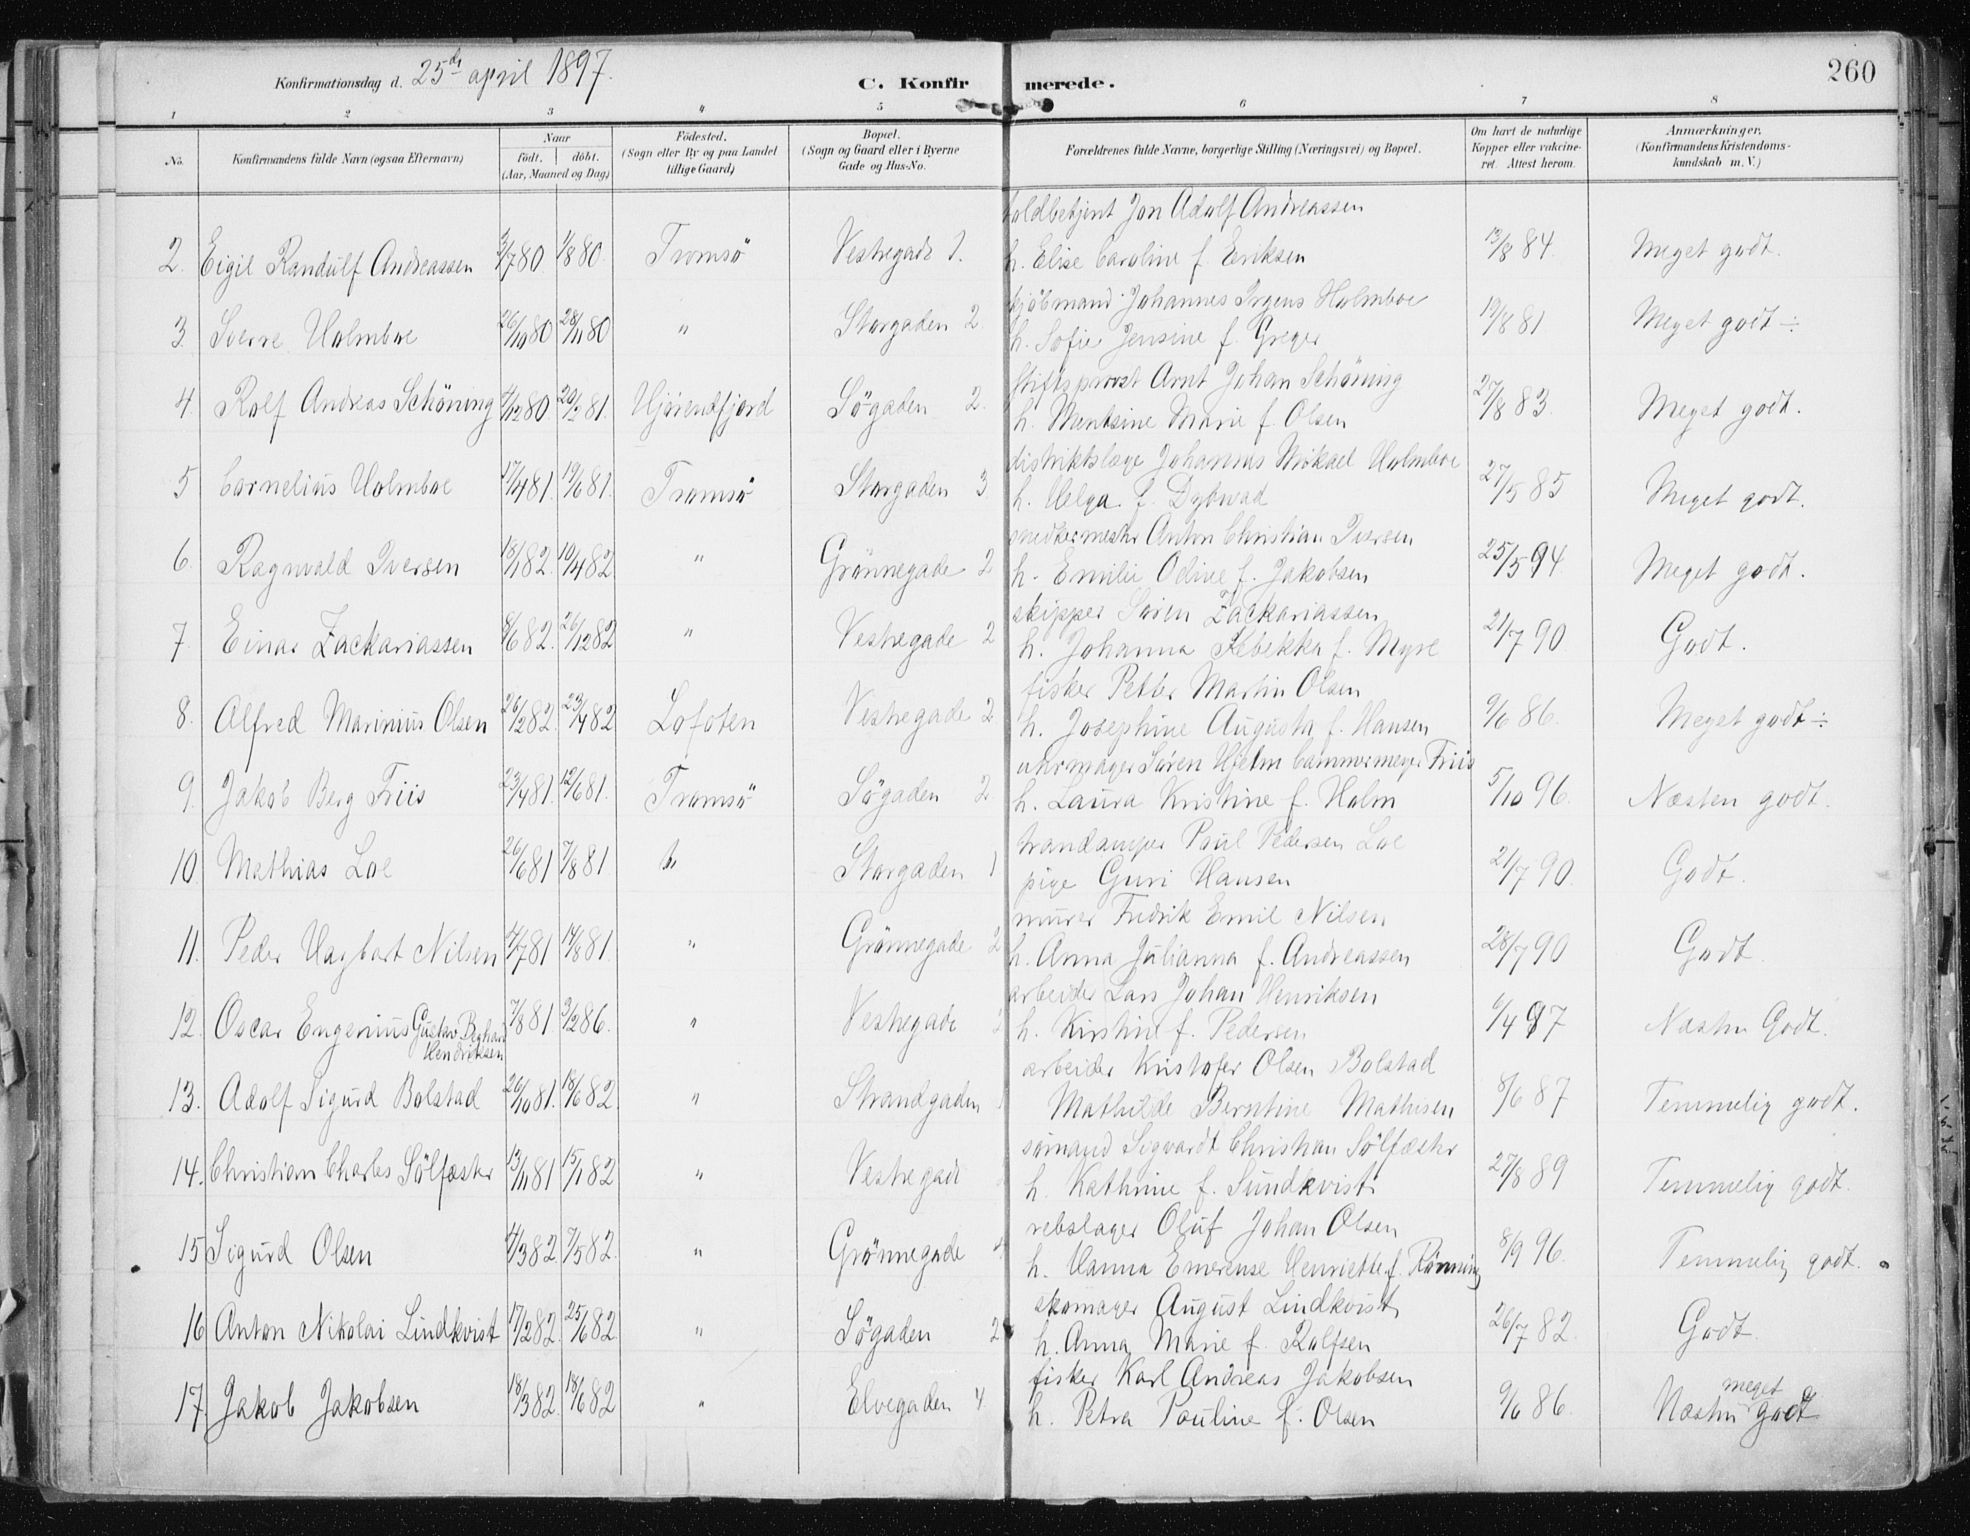 Konfirmationsdag d. 25de april 1897.
C. Konfirmerede.
260
1 2 3 " 5 6 7 8
No.
Konfirmandens fulde Navn (ogsaa Efternavn)
Naar
født. døbt.
(Aar, Maaned og Dag)
Fødested.
(Sogn eller By og paa Landet
tillige Gaard)
Bopæl.
(Sogn og Gaard eller i Byerne
Gade og Hus-No.
Forældrenes fulde Navne, borgerlige Stilling (Næringsvei) og Bopæl.
Om havt de naturlige
Kopper eller vakcine-
ret. Attest herom.
Anmærkninger.
(Konfirmandens Kristendoms-
kundskab m. V.)
toldbetjent Jon Adolf Andreassen
2. Eigil Randulf Andreassen /7 80 1/8 80 Tromsö Vestregade 1. h. Elise Caroline f. Eriksen 13/8 84. Meget godt.
kjöbmand Johannes Irgens Holmboe
3. Sverre Holmboe 26/10 80 28/11 80 " Storgaden 2. h. Sofie Jensine f. Greger 19/8 81 Meget godt ÷
stiftsprovst Arnt Johan Schöning
4. Rolf Andreas Schöning /12 80 20/2 81. Hjörendfjord Sögaden 2. h. Marie f. Olsen 27/8 83. Meget godt.
distriktslæge Johannes Mikael Holmboe
5 Cornelius Holmboe 17/4 81. 19/6 81. Tromsö Storgaden 3. h. Helga f. Dybwad 27/5 85 Meget godt.
snedkermestr Anton Christian Iversen
6. Ragnvald Iversen 18/1 82. 10/4 82 " Grönnegade 2 h. Emilie Odine f. Jakobsen 25/5 94 Meget godt.
skipper Sören Zackariassen
7. Einar Zackariassen 8/6 82. 26/12 82 " Vestregade 2 h. Johanna Rebekka f. Myre 21/7 90. Godt.
fisker Petter Martin Olsen
8. Alfred Marinius Olsen 26/2 82. 23/4 82 Lofoten Vestregade 2. h. Josephine Augusta f. Hansen 9/6 86. Meget godt ÷
uhrmager Sören Hjelm Cammermeyer Friis
9. Jakob Berg Friis 23/4 81. 12/6 81. Tromsö Sögaden 2 h. Laura Kristine f. Holm 5/10 96. Næsten godt.
Paul Pedersen Loe
10. Mathias Loe 26/6 81 7/8 81. Storgaden 1 pige Guri Hansen 21/7 90. Godt.
murer Fredrik Emil Nilsen
11. Peder Hagbart Nilsen 4/7 81 14/8 81. " Grönnegade 2 h. Anna Julianna f. Andreassen 28/7 90 Godt.
arbeider Lars Johan Henriksen
12. Oscar Engenius Gustav Hendriksen 7/8 81. 3/2 86. " Vestregade h. Kirstine f. Pedersen 6/4 97 Næsten Godt.
arbeider Kristofer Olsen Bolstad
13. Adolf Sigurd Bolstad 26/10 81. 18/6 82 " Strandgaden Mathilde Berntine Mathisen 8/6 87 Temmelig godt.
sömand Sigvardt Christian Sölfæster
14. Christian Charles Sölfæster 13/11 81 15/1 82 " Vestregade h. Kathrine f. Sundkvist 27/8 89 Temmelig godt.
rebslager Oluf Johan Olsen
15 Sigurd Olsen 4/3 82 7/5 82. " Grönnegade h. Hanna Emerense Henriette f. Rönning 8/9 96. Temmelig godt.
skomager August Lindkvist
16 Anton Nikolai Lindkvist 17/2 82. 25/6 82. " Sögaden 2 h. Anna Marie f. Rolfsen 26/7 82. Godt.
fisker Karl Andreas Jakobsen
17. Jakob Jakobsen 18/3 82. 18/6 82 " Elvegaden 4. h. Petra Pauline f. Olsen 9/6 86. Næsten meget godt